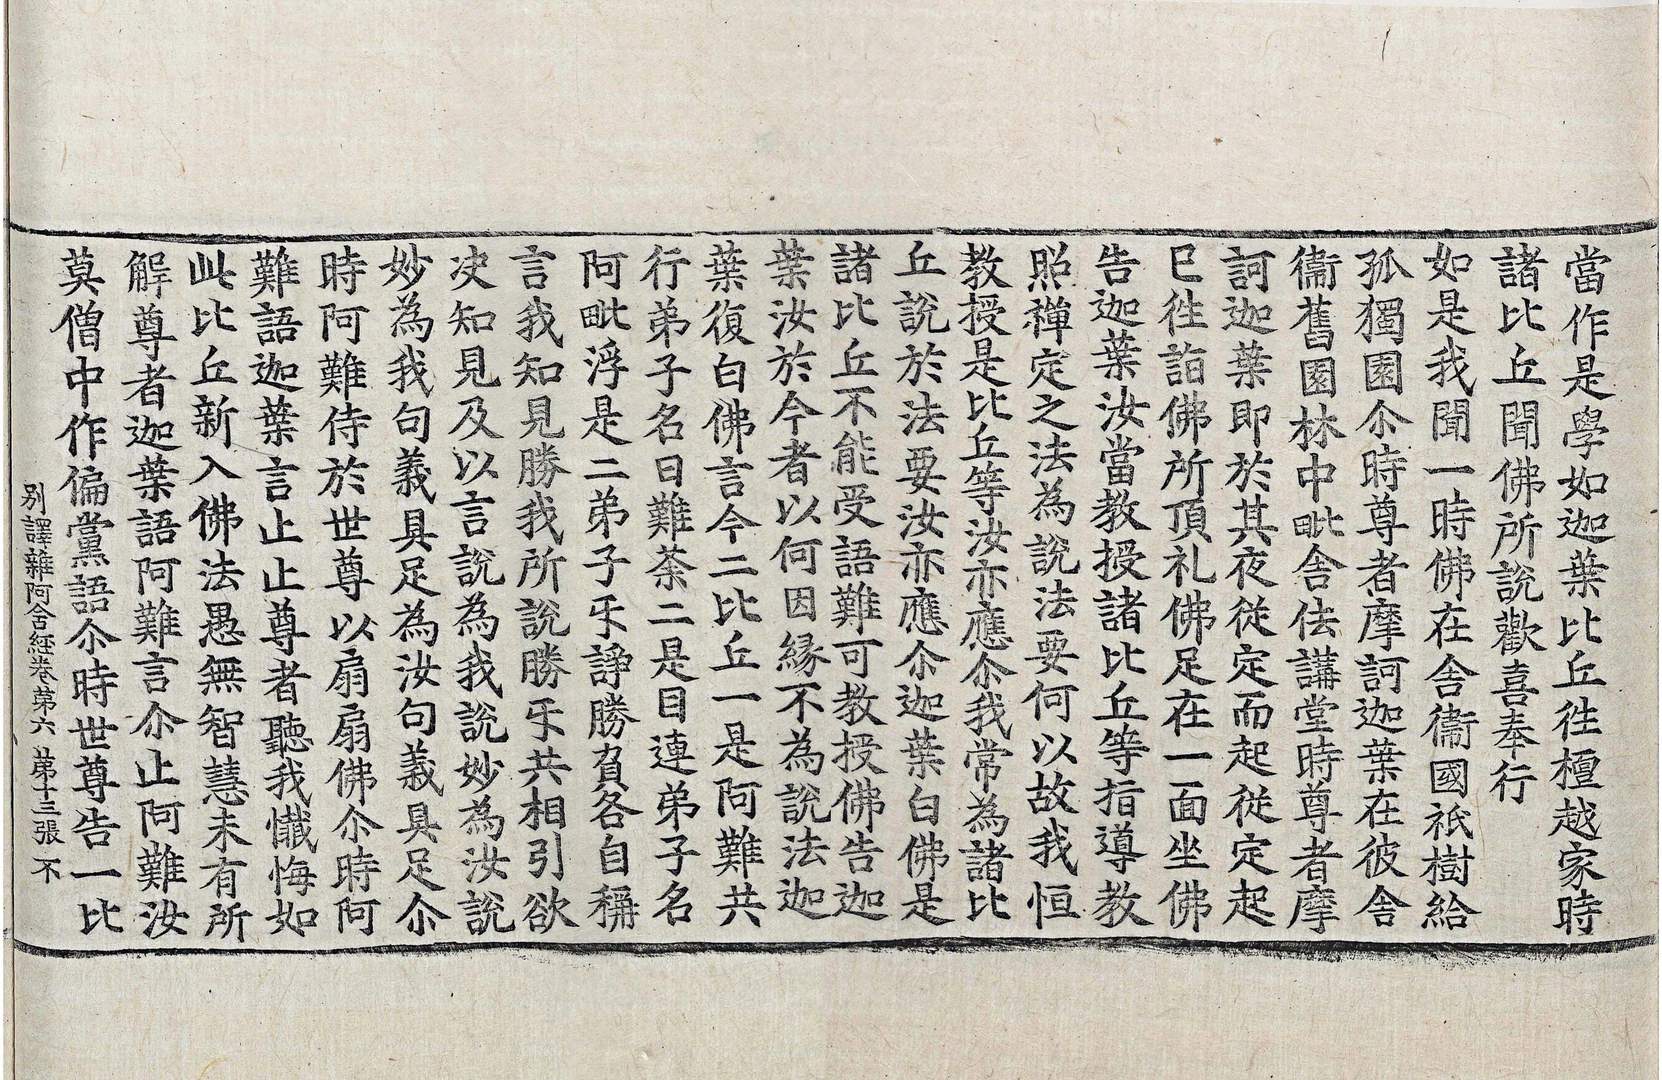 當作是學如迦葉比丘徃檀越家時
諸比丘聞佛所說歡喜奉行
如是我聞一時佛在舍衞國祇樹給
孤獨園尒時尊者摩訶迦葉在彼舍
衞舊園林中毗舍佉講堂時尊者摩
訶迦葉即於其夜從定而起從定起
巳徃詣佛所頂礼佛足在一面坐佛
告迦葉汝當教授諸比丘等指導教
照禪定之法為說法要何以故我恒
教授是比丘等汝亦應尒我常為諸比
丘說於法要汝亦應尒迦葉白佛是
諸比丘不能受語難可教授佛告迦
葉汝於今者以何因縁不為說法迦
葉復白佛言今二比丘一是阿難共
行弟子名曰難荼二是目連弟子名
阿毗浮是二弟子㸦諍勝負各自稱
言我知見勝我所說勝㸦共相引欲
决知見及以言說為我說妙為汝說
妙為我句義具足為汝句義具足尒
時阿難侍於世尊以扇扇佛尒時阿
難語迦葉言止止尊者聽我懴悔如
此比丘新入佛法愚無智慧未有所
解尊者迦葉語阿難言尒止阿難汝
莫僧中作偏黨語尒時世尊告一比
别譯雜阿含經卷第六 第十三張 不